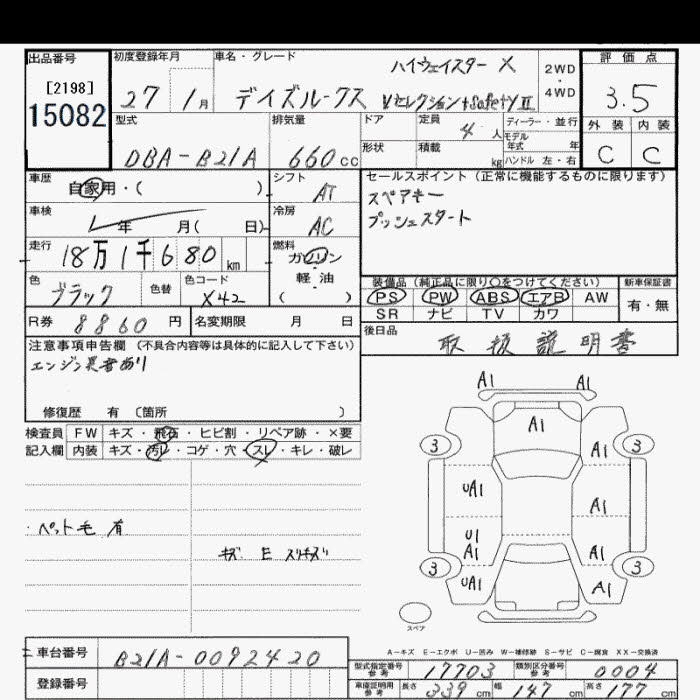 出品番号 初度登録年月 車名・グレード ハイウェイスター X 2WD・4WD 評価点
[2198]
15082 27 1月 デイズルークス Vセレクション+Safety II 3.5
型式 排気量 ドア 定員 4人 ディーラー・並行 外装 内装
DBA-B21A 660cc 形状 積載 kg モデル年式 年 ハンドル 左・右 C C
車歴 自家用・( ) シフト AT セールスポイント (正常に機能するものに限ります)
車検 年 月( 日) 冷房 AC スペアキー
プッシュスタート
走行 18万1千680km 燃料 ガソリン
軽油
( )
色 ブラック 色替 色コード X42 装備品 (純正品に限り○をつけてください) 新車保証書
PS PW ABS エアB AW 有・無
SR ナビ TV カワ
R券 8860円 名変期限 月 日 後日品 取扱説明書
注意事項申告欄 (不具合内容等は具体的に記入して下さい)
エンジン異音あり
修復歴 有 〔箇所 〕
検査員 FW キズ・飛石・ヒビ割・リペア跡・×要
記入欄 内装 キズ・汚レ・コゲ・穴・スレ・キレ・破レ
・ペット毛 有
キズ E スリキズ
A1 A1
A1
3 3
UA1 A1
U1
A1 A1
3 3
UA1 A1
スペア
A-キズ E-エクボ U-凹み W-補修跡 S-サビ C-腐食 XX-交換済
車台番号 B21A-0092420
型式指定番号 参考 17703 類別区分番号 参考 0004
登録番号
車庫証明用 参考 長さ 339cm 幅 147cm 高さ 177cm